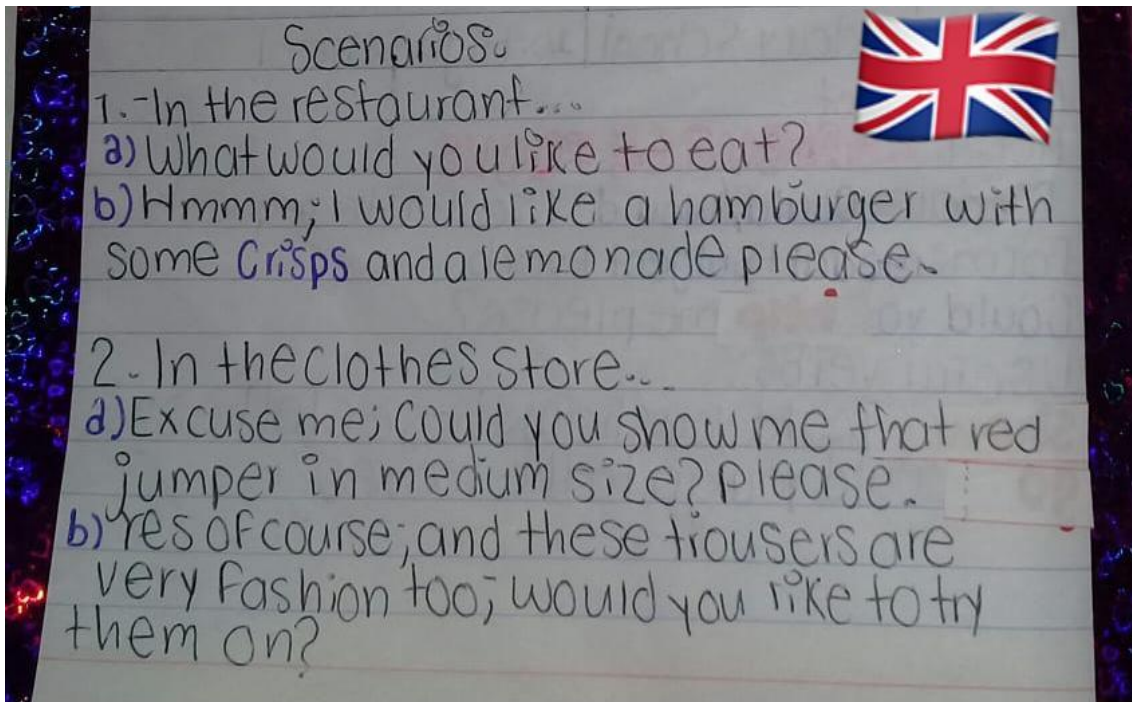 Scenarios.
1.-In the restaurant...
a) What would you like to eat?
b) Hmmm; I would like a hamburger with
some crisps and a lemonade please.
2. In the clothes store...
a) Excuse me; Could you show me that red
jumper in medium size? please.
b) Yes of course; and these trousers are
very fashion too; would you like to try
them on?